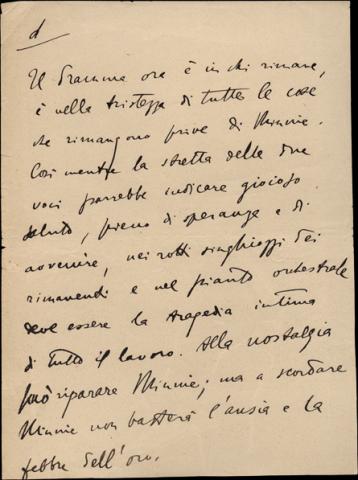 d
Il Dramma ora è in chi rimane,
è nella tristezza di tutte le cose
che rimangono prive di Minnie.
Così mentre la stretta delle due
voci parrebbe indicare gioioso
saluto, pieno di speranze e di
avvenire, nei rotti singhiozzi dei
rimanendi e nel pianto orchestrale
deve essere la tragedia intima
di tutto il lavoro. Alla nostalgia
può riparare Minnie; ma a scordare
Minnie non basterà l'ansia e la
febbre dell'oro.